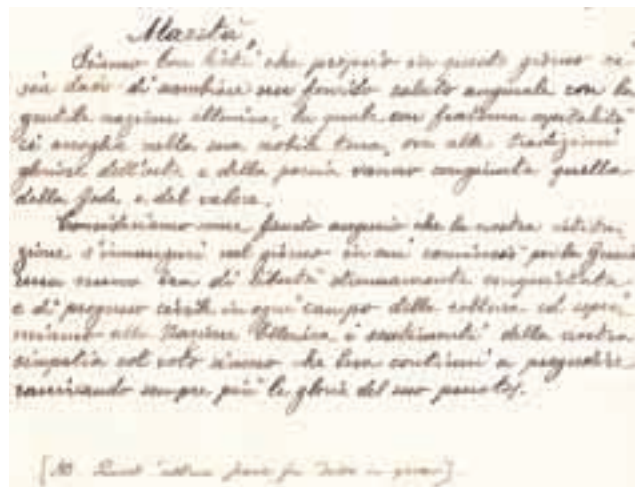 Maestà,
Siamo ben lieti che proprio in questo giorno ci
sia dato di scambiare un fervido saluto augurale con la
gentile nazione ellenica, la quale con fraterna ospitalità
ci accoglie nella sua nobile terra, ove alle tradizioni
gloriose dell'arte e della poesia vanno congiunte quelle
della fede e del valore.
Consideriamo come fausto augurio che la nostra
s'inauguri nel giorno in cui cominciò per la Grecia
una nuova era di libertà strenuamente conquistata
e di progresso civile in ogni campo della cultura ed
alla Nazione Ellenica i sentimenti della nostra
simpatia col voto sincero che essa continui a progredire
ravvivando sempre più le glorie del suo passato.
[NB. in greco]